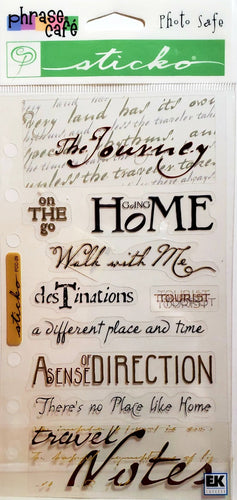 phrase café
Photo Safe
sticko
Every land has its own
unless the traveler takes
The Journey
unless the traveler takes
on THE go
GOING HOME
Walk with Me
desTinations
TOURIST
a different place and time
A SENSE OF DIRECTION
There's no Place like Home
travel
Notes
sticko
EK